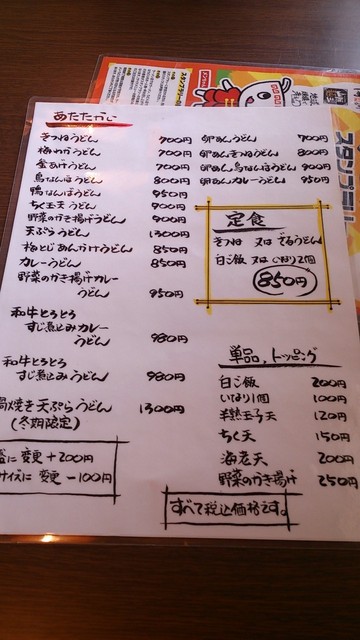 あたたかい
きつねうどん 700円
梅わかうどん 700円
釜あげうどん 700円
鳥なんばうどん 800円
鴨なんばうどん 950円
ちく玉うどん 900円
野菜のかき揚げうどん 900円
天ぷらうどん 1300円
梅とじあんかけうどん 850円
カレーうどん 850円
野菜のかき揚げカレー
うどん 950円
和牛とろとろ
すじ煮込みカレー
うどん 980円
和牛とろとろ
すじ煮込みうどん 980円
焼き天ぷらうどん 1300円
(冬期限定)
に変更 +200円
サイズに変更 -100円
卵めんうどん 700円
卵めんきつねうどん 800円
卵めん鳥なんばうどん 900円
卵めんカレーうどん 950円
定食
きつね 又は ざるうどん
白ご飯 又は いなり2個
850円
単品、トッピング
白ご飯 200円
いなり1個 100円
半熟玉子天 120円
ちく天 150円
海老天 200円
野菜のかき揚げ 250円
すべて税込価格です。